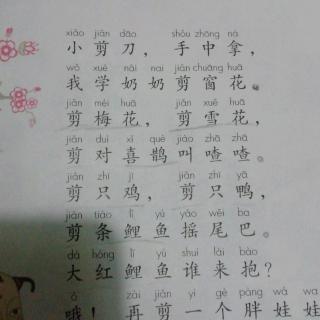 xiǎo jiǎn dāo shǒu zhōng ná
小剪刀，手中拿，
wǒ xué nǎi nai jiǎn chuāng huā
我学奶奶剪窗花。
jiǎn méi huā jiǎn xuě huā
剪梅花，剪雪花，
jiǎn duì xǐ què jiào zhā zhā
剪对喜鹊叫喳喳。
jiǎn zhī jī jiǎn zhī yā
剪只鸡，剪只鸭，
jiǎn tiáo lǐ yú yáo wěi ba
剪条鲤鱼摇尾巴。
dà hóng lǐ yú shuí lái bào
大红鲤鱼谁来抱？
ò zài jiǎn yí gè pàng wá wa
哦！再剪一个胖娃娃